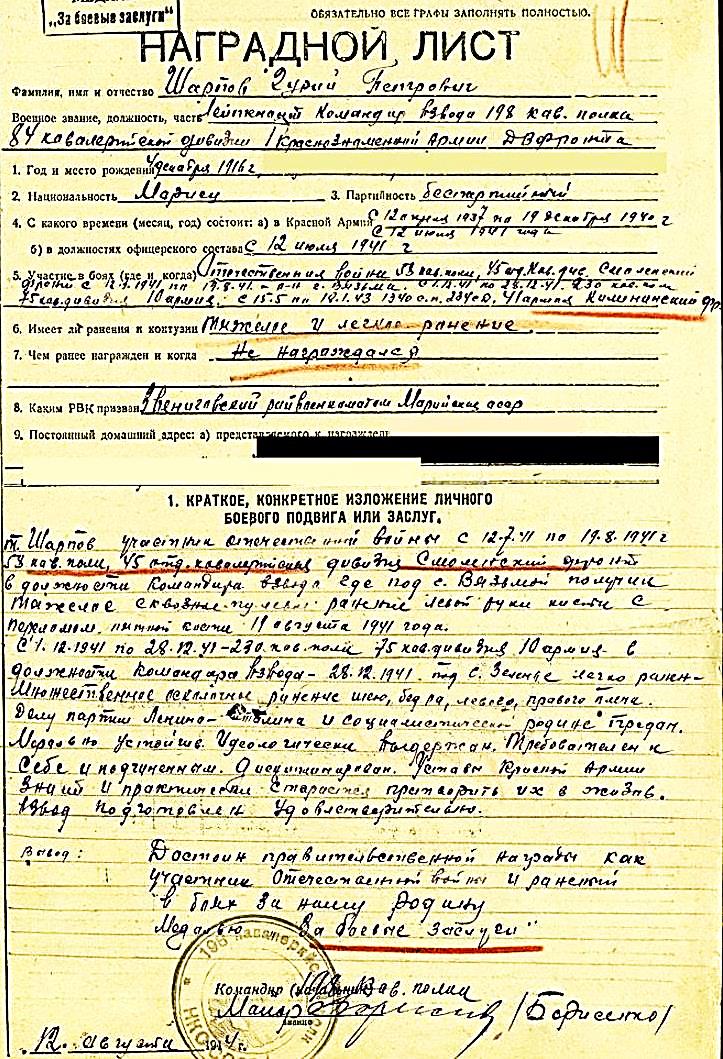 „За боевые заслуги"
ОБЯЗАТЕЛЬНО ВСЕ ГРАФЫ ЗАПОЛНЯТЬ ПОЛНОСТЬЮ.
НАГРАДНОЙ ЛИСТ
Фамилия, имя и отчество Шарпов Гурий Петрович
Военное звание, должность, часть Лейтенант Командир взвода 198 кав. полка
84 кавалерийской дивизии 1 Краснознаменной Армии ДВФронта
1. Год и место рождения 4 декабря 1916 г.
2. Национальность Мариец 3. Партийность беспартийный
4. С какого времени (месяц, год) состоит: а) в Красной Армии с 12 апреля 1937 по 19 декабря 1940 г
с 12 июля 1941 года
б) в должностях офицерского состава с 12 июля 1941 г
5. Участие в боях (где и когда) Отечественная война 53 кав. полк, 45 отд. кав. див. Смоленский
фронт с 12.7.1941 по 19.8.41 - р-н г. Вязьма. с 1.12.41 по 28.12.41. 230 кав. полк
75 кав. дивизия 10 армия. с 15.5 по 1940 с.п. 41 армия Калининский фр.
6. Имеет ли ранения и контузии Тяжелое и легкое ранение
7. Чем ранее награжден и когда Не награждался
8. Каким РВК призван Звениговский райвоенкоматом Марийская асср
9. Постоянный домашний адрес: а) представляемого к награждению
1. КРАТКОЕ, КОНКРЕТНОЕ ИЗЛОЖЕНИЕ ЛИЧНОГО
БОЕВОГО ПОДВИГА ИЛИ ЗАСЛУГ.
т. Шарпов участник отечественной войны с 12.7.41 по 19.8.1941 г
53 кав. полк, 45 отд. кавалерийская дивизия Смоленский фронт
в должности Командира взвода где под г. Вязьмой получил
тяжелое сквозное пулевое ранение левой руки кисти с
переломом кости 19 августа 1941 года.
С 1.12.1941 по 28.12.41 - 230 кав. полк 75 кав. дивизия 10 армия - в
должности Командира взвода - 28.12.1941 под с. легко ранен -
Множественное осколочное ранение шею, бедра, левого, правого плеча.
Делу партии Ленина - Сталина и социалистической родине предан.
Морально устойчив. Идеологически выдержан. Требователен к
себе и подчиненным. Дисциплинирован. Уставы Красной Армии
знает и практически старается претворить их в жизнь.
Взвод подготовлен удовлетворительно.
Вывод: Достоин правительственной награды как
участник Отечественной войны и раненый
в боях за нашу родину
Медалью „За боевые заслуги"
Командир (начальник) 198 кав. полка
Майор Борисенко /Борисенко/
звание
„12" августа 1944 г.